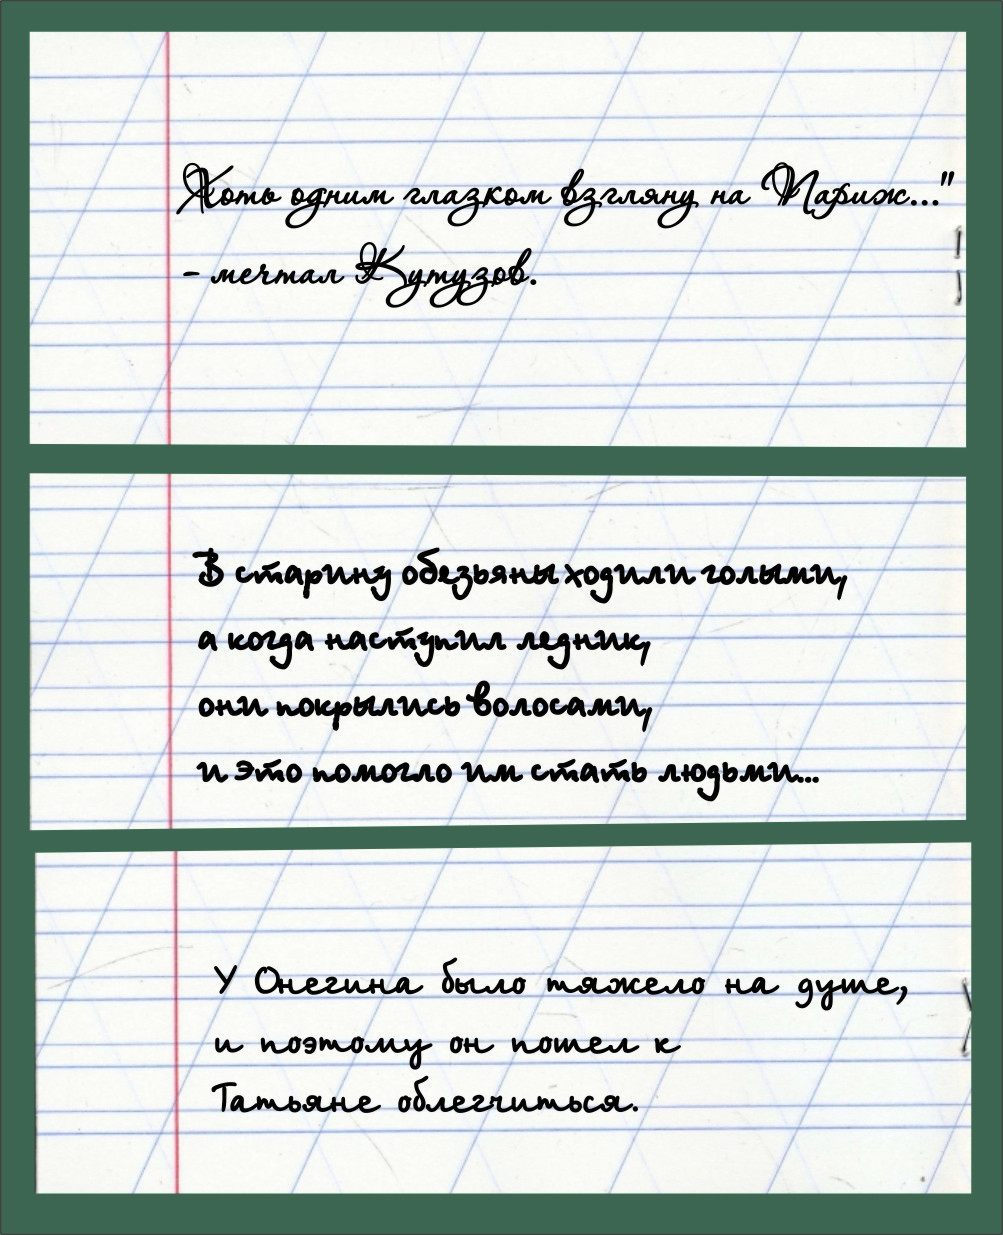 Хоть одним глазком взгляну на Париж..."
- мечтал Кутузов.
В старину обезьяны ходили голыми,
а когда наступил ледник,
они покрылись волосами,
и это помогло им стать людьми...
У Онегина было тяжело на душе,
и поэтому он пошел к
Татьяне облегчиться.